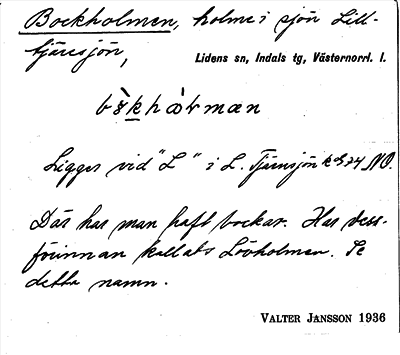 Bockholmen, holme i sjön Lill-
tjärnsjön,
Lidens sn, Indals tg, Västernorrl. l.
Ligger vid "L" i L. Tjärnsjön NO.
Där har man haft bockar. Har dess-
förinnan kallats Lövholmen. Se
detta namn.
VALTER JANSSON 1936